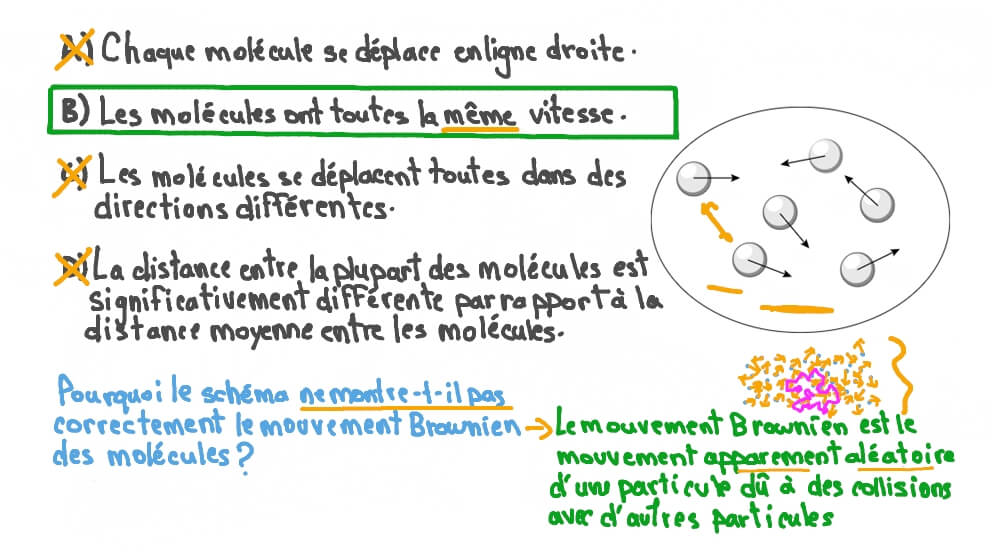 A) Chaque molécule se déplace en ligne droite.
B) Les molécules ont toutes la même vitesse.
C) Les molécules se déplacent toutes dans des
directions différentes.
D) La distance entre la plupart des molécules est
significativement différente par rapport à la
distance moyenne entre les molécules.
Pourquoi le schéma ne montre-t-il pas
correctement le mouvement Brownien
des molécules ?
Le mouvement Brownien est le
mouvement apparement aléatoire
d'une particule dû à des collisions
avec d'autres particules